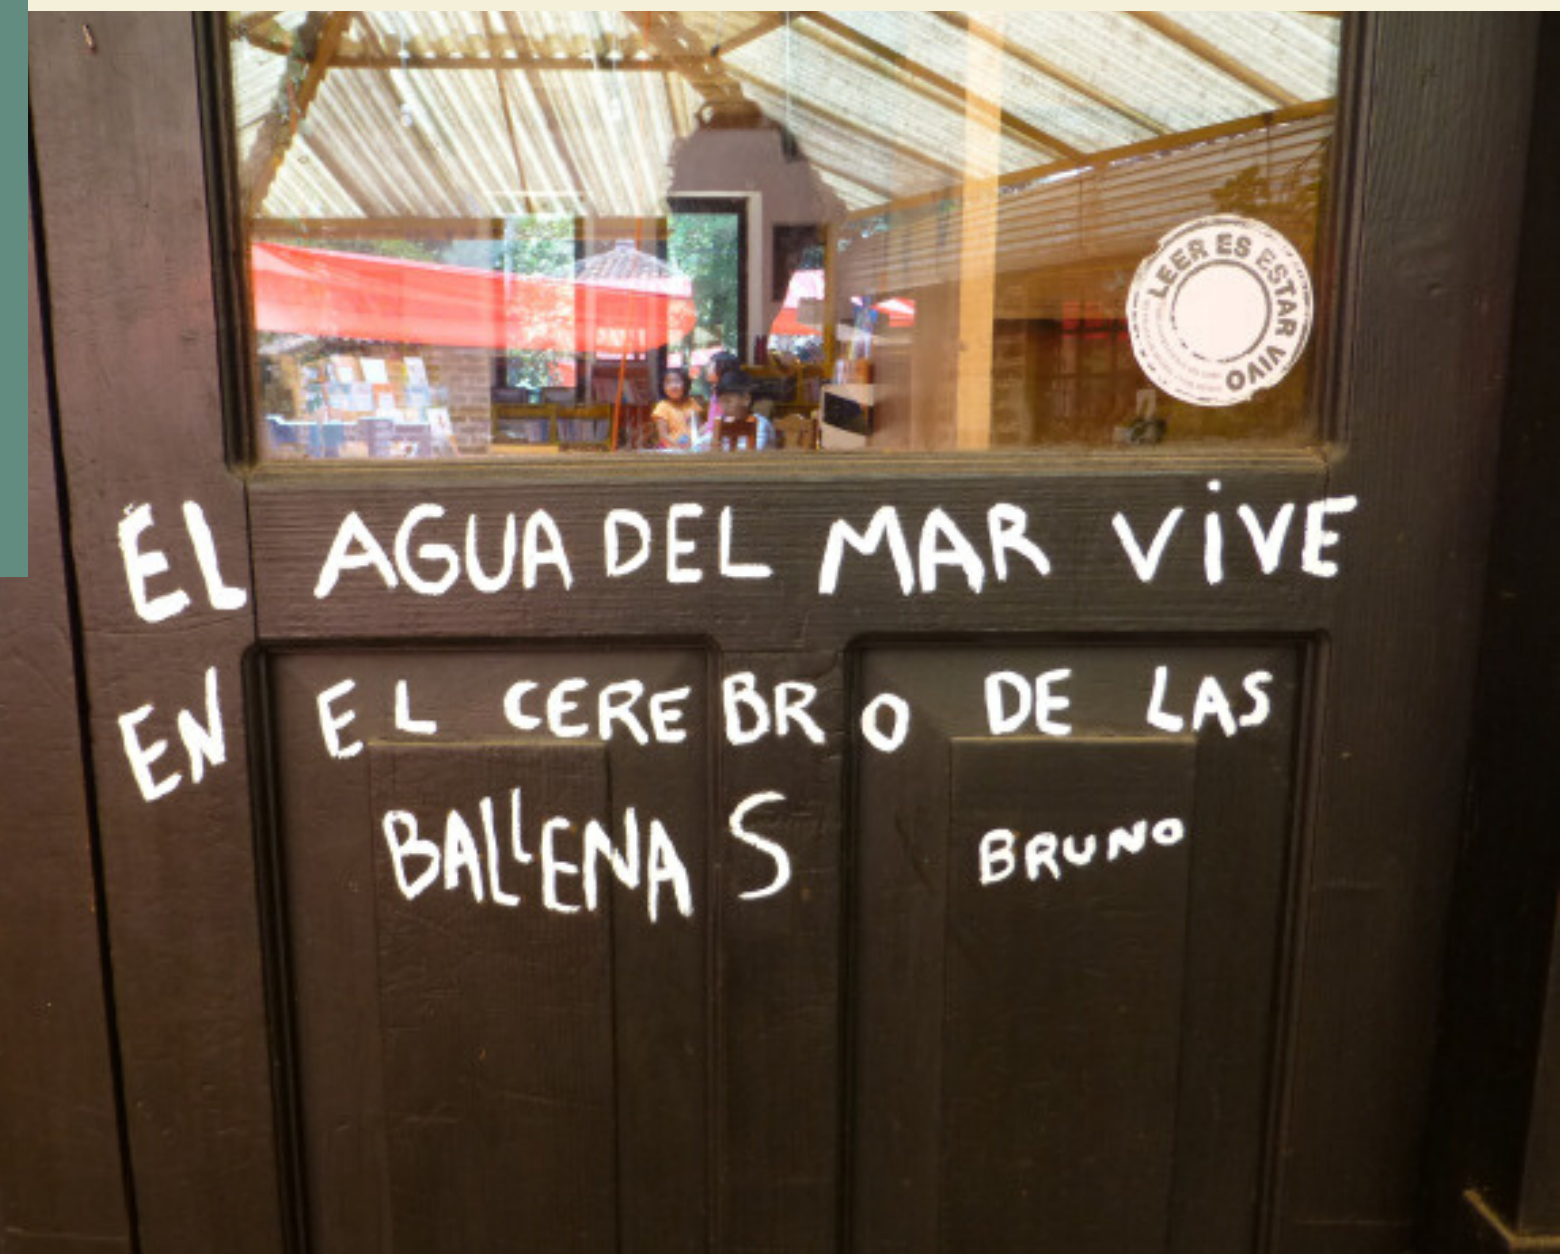 LEER ES ESTAR VIVO
EL AGUA DEL MAR VIVE
EN EL CEREBRO DE LAS
BALLENAS BRUNO